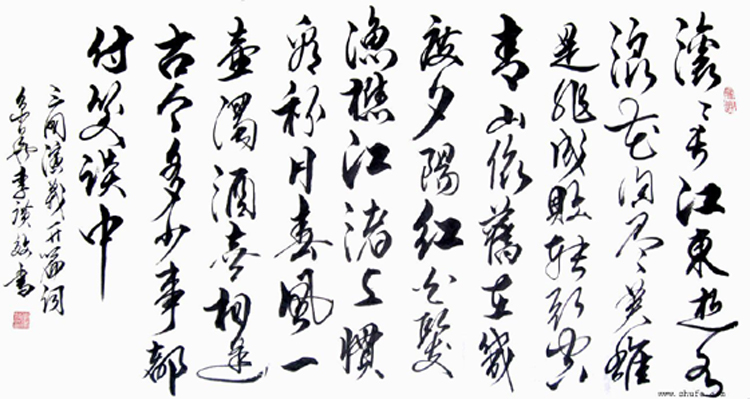 滚〻长江東逝水
浪花淘尽英雄
是非成败转头空
青山依舊在幾
度夕陽红白髮
渔樵江渚上慣
看秋月春風一
壶濁酒喜相逢
古今多少事都
付笑谈中
三国演义开篇词
李
书